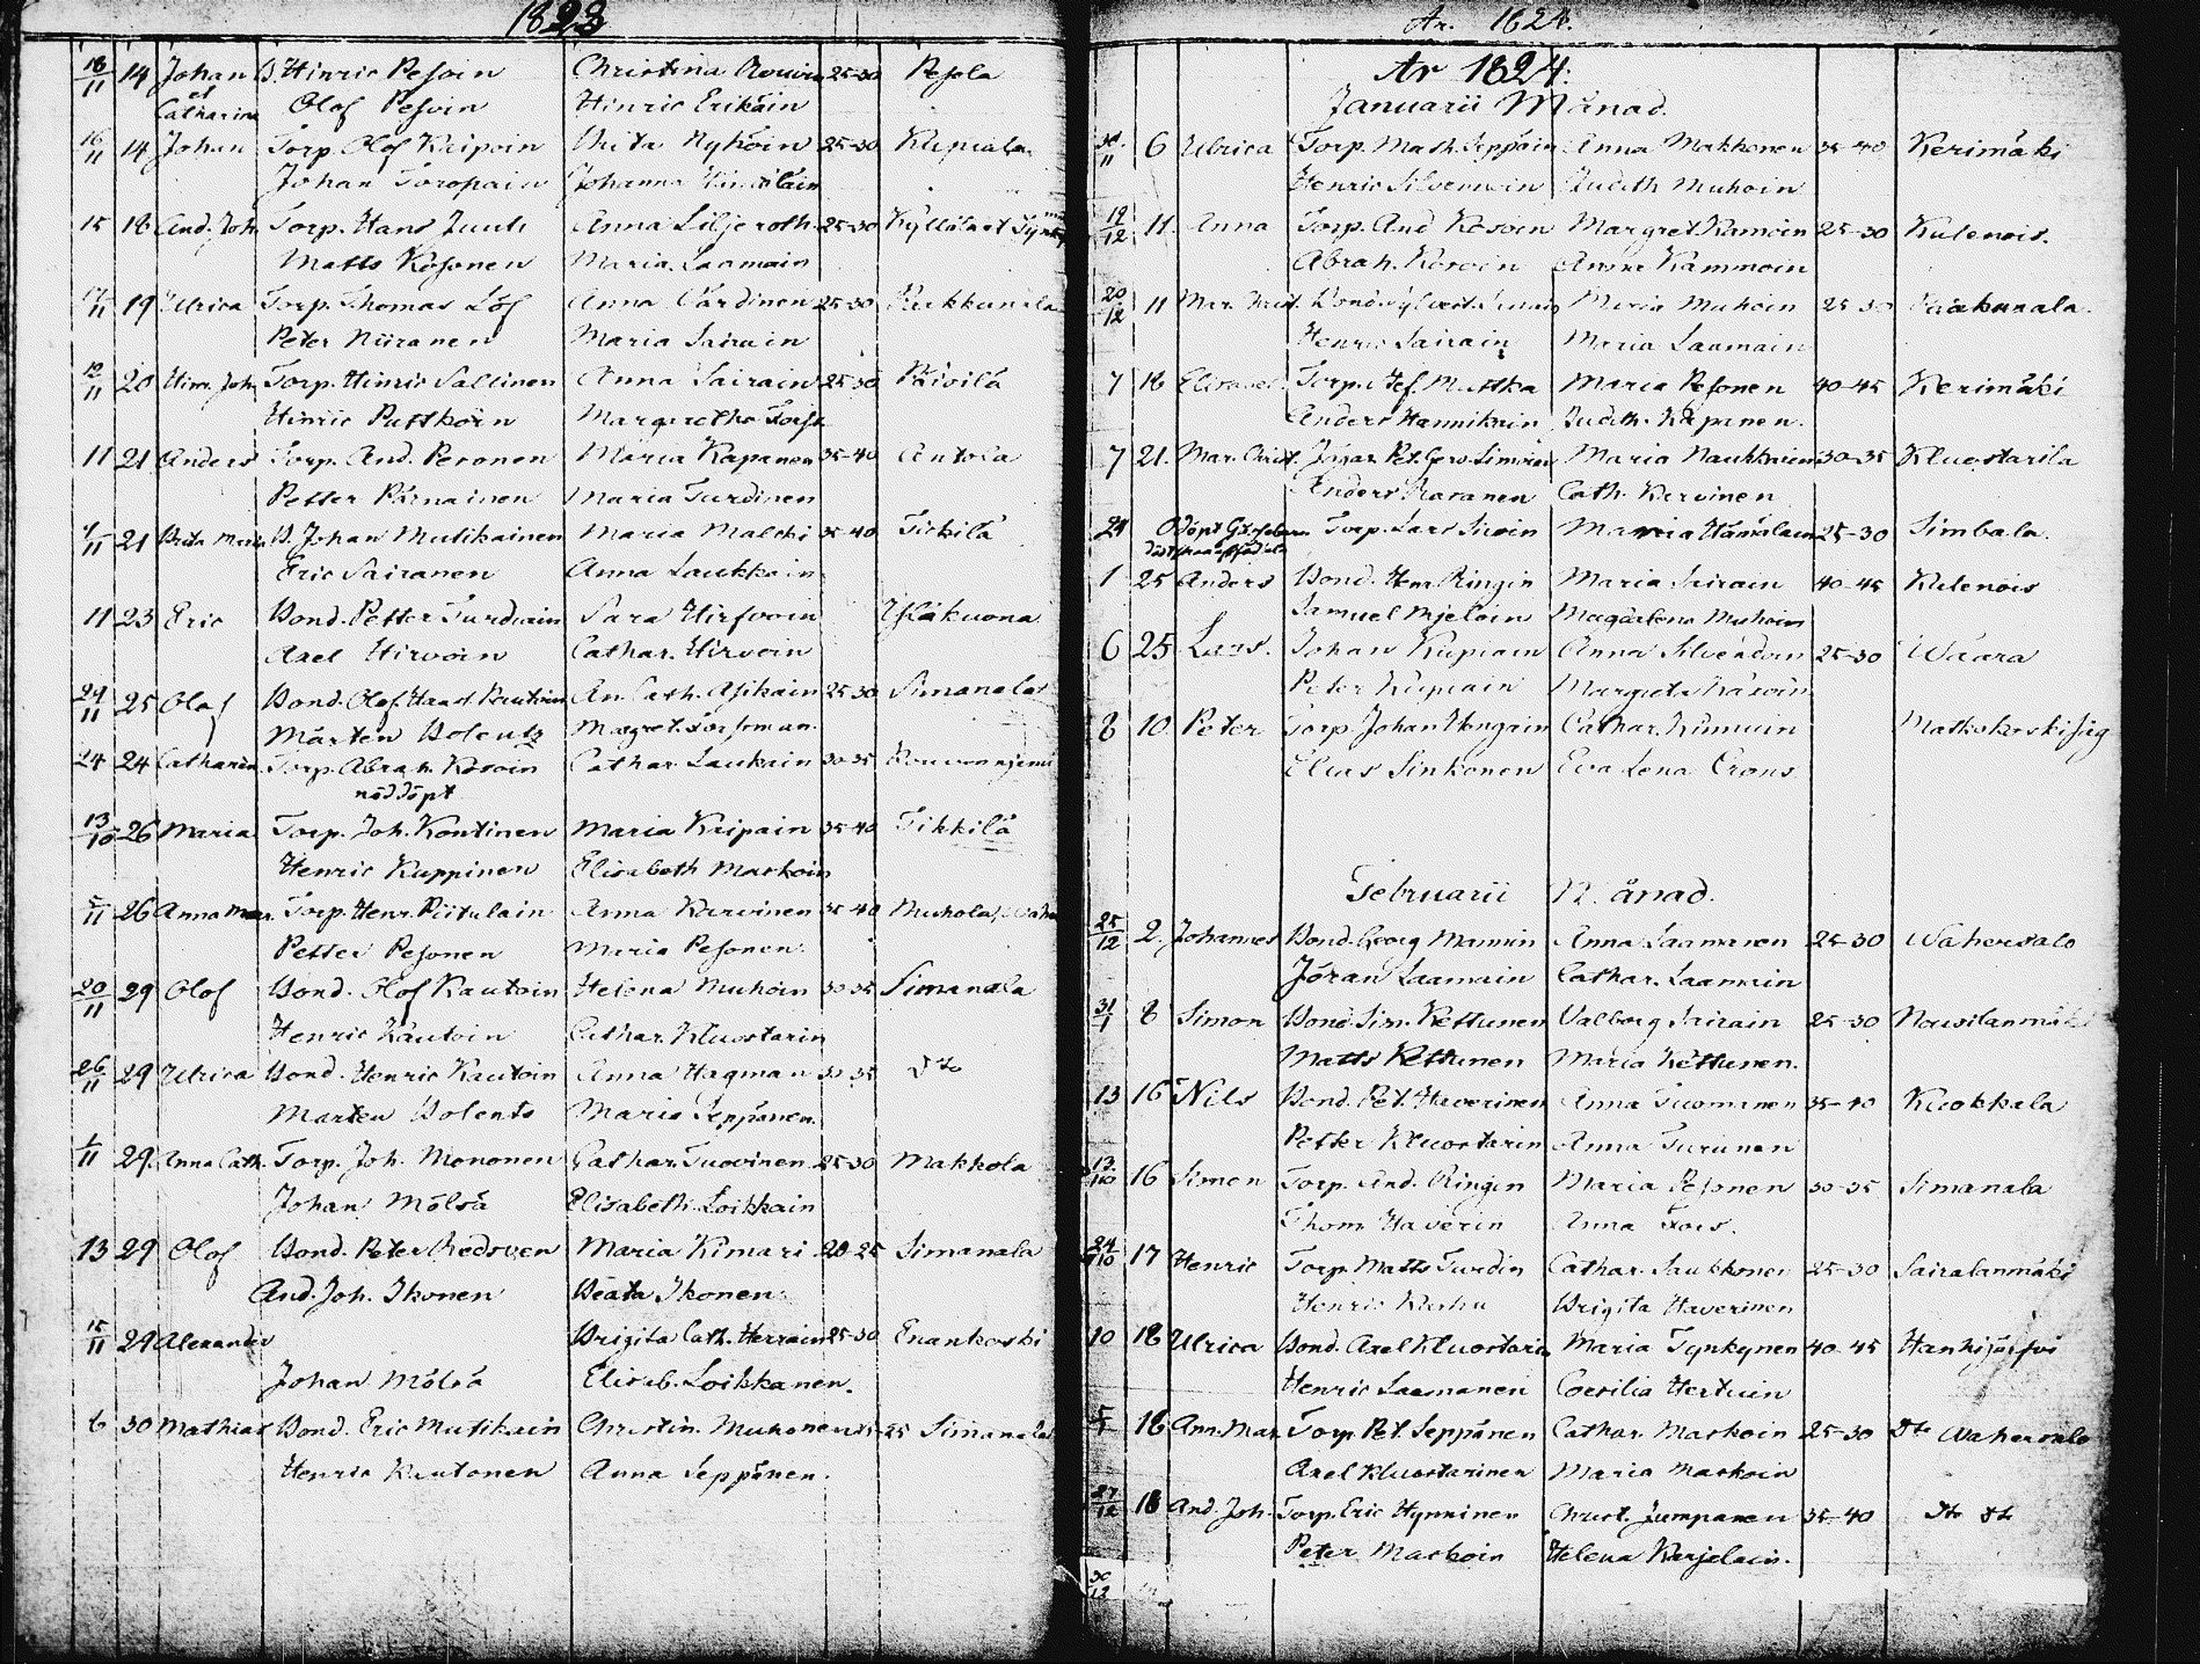 1823
18/11 14 Johan B. Hinric Pesoin Christina 25-30 Pesola
et Catharina Olof Pesoin Hinric Erikäin
16/11 14 Johan Torp. Olof Kaipoin Brita Nyhöin 25-30
Johan Toropain Johanna
15 18 And. Joh. Torp. Hans Juuti Anna Liljeroth 25-30
Matts Kosonen Maria Laamain
17/11 19 Ulrica Torp. Thomas Löf Anna 25-30
Peter Niiranen Maria Sairain
12/11 20 Hinr. Joh. Torp. Hinric Sallinen Anna Sairain 25-30 Päivilä
Hinric Puttkoin Margaretha
11 21 Anders Torp. And. Peronen Maria Kapanen 35-40 Antola
Petter Pärnainen Maria Turdinen
4/11 21 Brita Maria B. Johan Mutikainen Maria Malchi 35-40 Tickilä
Eric Sairanen Anna Laukkain
11 23 Eric Bond. Petter Turduain Sara Hirfvoin Yläkuona
Axel Hirvoin Cathar. Hirvoin
29/11 25 Olof Bond. Olof Kautoin An. Cath. Asikain 25-30 Simanala
Mårten Bolentz Margret. Forsoman
24 24 Catharin. Torp. Abrah. Kosoin Cathar. Laukain 30-35
nöddöpt
13/10 26 Maria Torp. Joh. Kontinen Maria Kaipain 35-40 Tikkilä
Henric Kuppinen Elisabeth Markoin
5/11 26 Anna Mar. Torp. Henr. Piitulain Anna Karvinen 35-40 Muhola
Petter Pesonen Maria Pesonen
20/11 29 Olof Bond. Olof Kautoin Helena Muhoin 30-35 Simanala
Henric Kautoin Cathar. Kluostarin
26/11 29 Ulrica Bond. Henric Kautoin Anna Hagman 30-35 Dto
Marten Bolents Maria Seppänen
1/11 29 Anna Cath. Torp. Joh. Mononen Cathar. Tuovinen 25-30 Makkola
Johan Mölsä Elisabeth Loikkain
13 29 Olof Bond. Peter Redsven Maria Kimari 20-25 Simanala
And. Joh. Ikonen Beata Ikonen
15/11 29 Alexander Brigita Cath. Herrain 25-30 Enankoski
Johan Mölsä Elisab. Loikkanen.
6 30 Mathias Bond. Eric Mutikain Christin. Muhonen Simanala
Henric Kautonen Anna Seppänen.
År. 1824.
År 1824:
Januarii Månad.
30/11 6 Ulrica Torp. Math. Seppäin Anna Makkonen 35-40 Kerimäki
Henric Silvennoin Judith Muhoin
12/12 11 Anna Torp. And. Kosoin Margret Ramoin 25-30 Kulenois.
Abrah. Kosoin Anna Kammoin
20/12 11 Mar. Christ. Bond. Maria Muhoin 25-30
Henric Sairain Maria Laamain
7 18 Torp. Mattka Maria Pesonen 40-45 Kerimäki
Anders Hannikain Judith. Kapanen.
7 21. Mar. Christ. Maria Naukkrien 30-35 Kluostarila
Anders Cath. Kervinen
24 Odöpt Gossebarn Torp. Lars Maria Hämälain 25-30 Simbala.
1 25 Anders Bond. Henr. Ringin Maria Sairain 40-45 Kulenois
Samuel Mjeloin Magdalena Muhoin
6 25 Lars. Johan Kupiain Anna 25-30 Waara
Peter Kupiain Margreta
8 10 Peter Torp. Johan Hongain Cathar.
Elias Sinkonen Eva Lena Crons
Februarii Månad.
25/12 2. Johannes Bond. Georg Mannin Anna Laamanen 25-30 Wahersalo
Jöran Laamain Cathar. Laamain
31/1 8 Simon Bond. Sim. Kettunen Valborg Sairain 25-30 Nousilanmäki
Matts Kettunen Maria Kettunen.
13 16 Nils Bond. Pet. Haverinen Anna Tuomanen 35-40 Kuokkala
Petter Kluostarin Anna Turunen
13/10 16 Simon Torp. And. Ringin Maria Pesonen 30-35 Simanala
Thom. Haverin Anna Fors.
24/10 17 Henric Torp. Matts Turdin Cathar. Saukkonen 25-30 Sairalanmäki
Henric Brigita Haverinen
10 18 Ulrica Bond. Axel Kluostarin Maria Tynkynen 40-45 Hanhijärfvi
Henric Laamanen Coecilia Hertuin
5/1 18 Ann. Mar. Torp. Pet. Seppänen Cathar. Markoin 25-30 Dto Wahersalo
Axel Kluostarinen Maria Markoin
27/12 18 And. Joh. Torp. Eric Hynninen Christ. Jumpanen 35-40 Dto Dto
Peter Markoin Helena Karjelain.
30/12